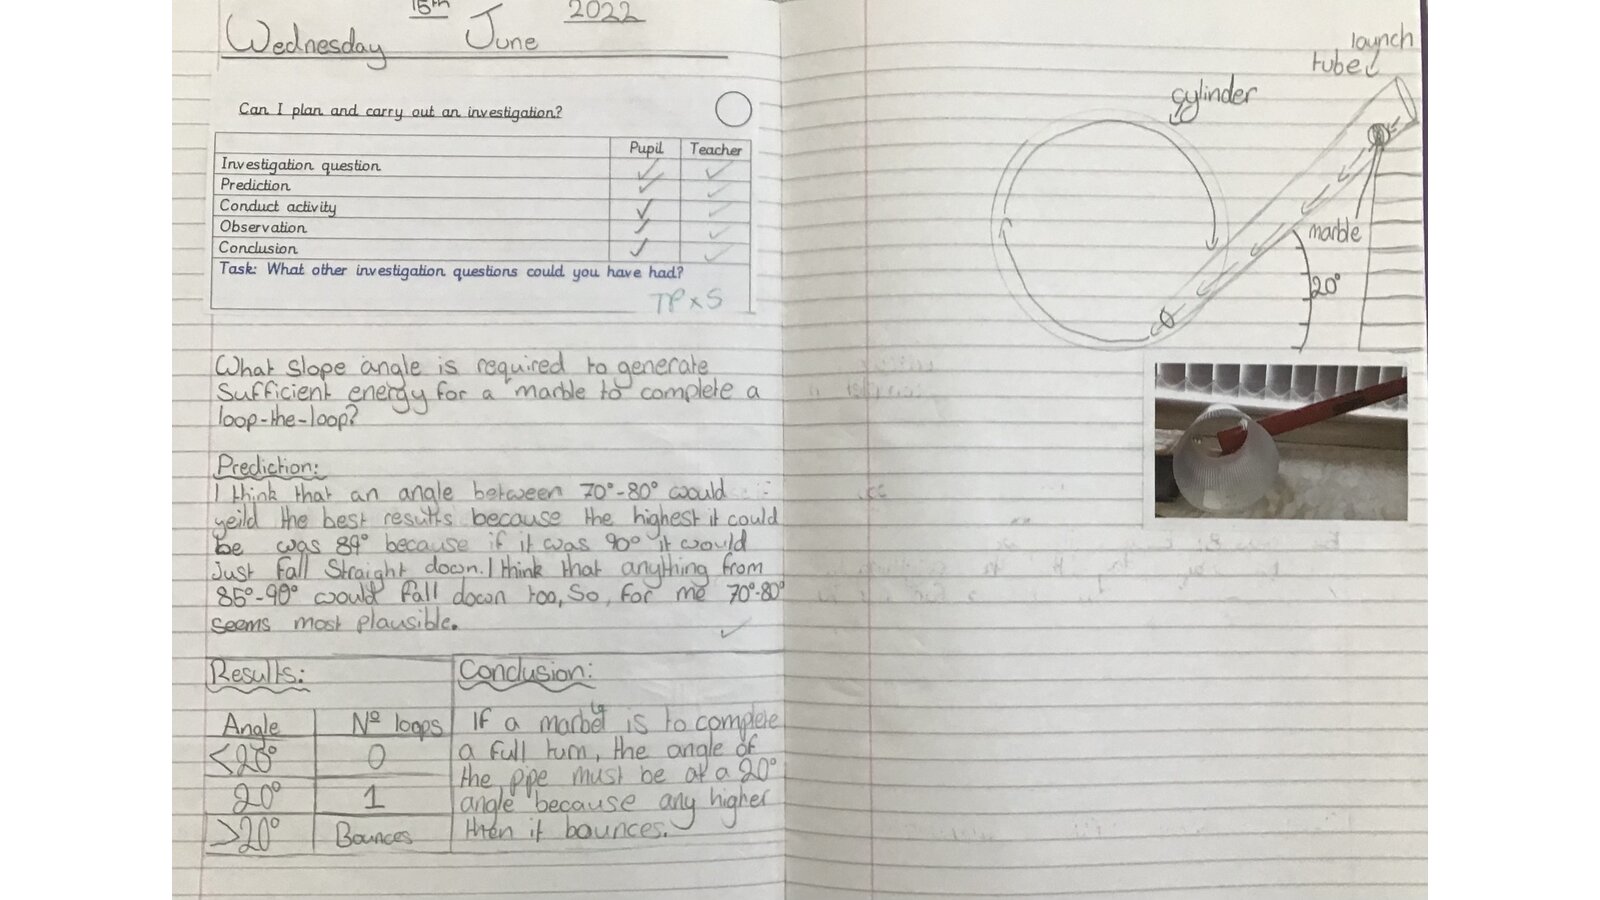 15th
2022
Wednesday June
Can I plan and carry out an investigation?
Pupil Teacher
Investigation question
Prediction
Conduct activity
Observation
Conclusion
Task: What other investigation questions could you have had?
TP x S
What slope angle is required to generate
sufficient energy for a marble to complete a
loop-the-loop?
Prediction:
I think that an angle between 70°-80° would
yeild the best results because the highest it could
be was 89° because if it was 90° it would
just fall straight down. I think that anything from
85°-90° would fall down too, So, for me 70°-80°
seems most plausible.
Results:
Angle Nº loops
<20° 0
20° 1
>20° Bounces
Conclusion:
If a marbel is to complete
a full turn, the angle of
the pipe must be at a 20°
angle because any higher
then it bounces.
launch
tube
cylinder
marble
20°